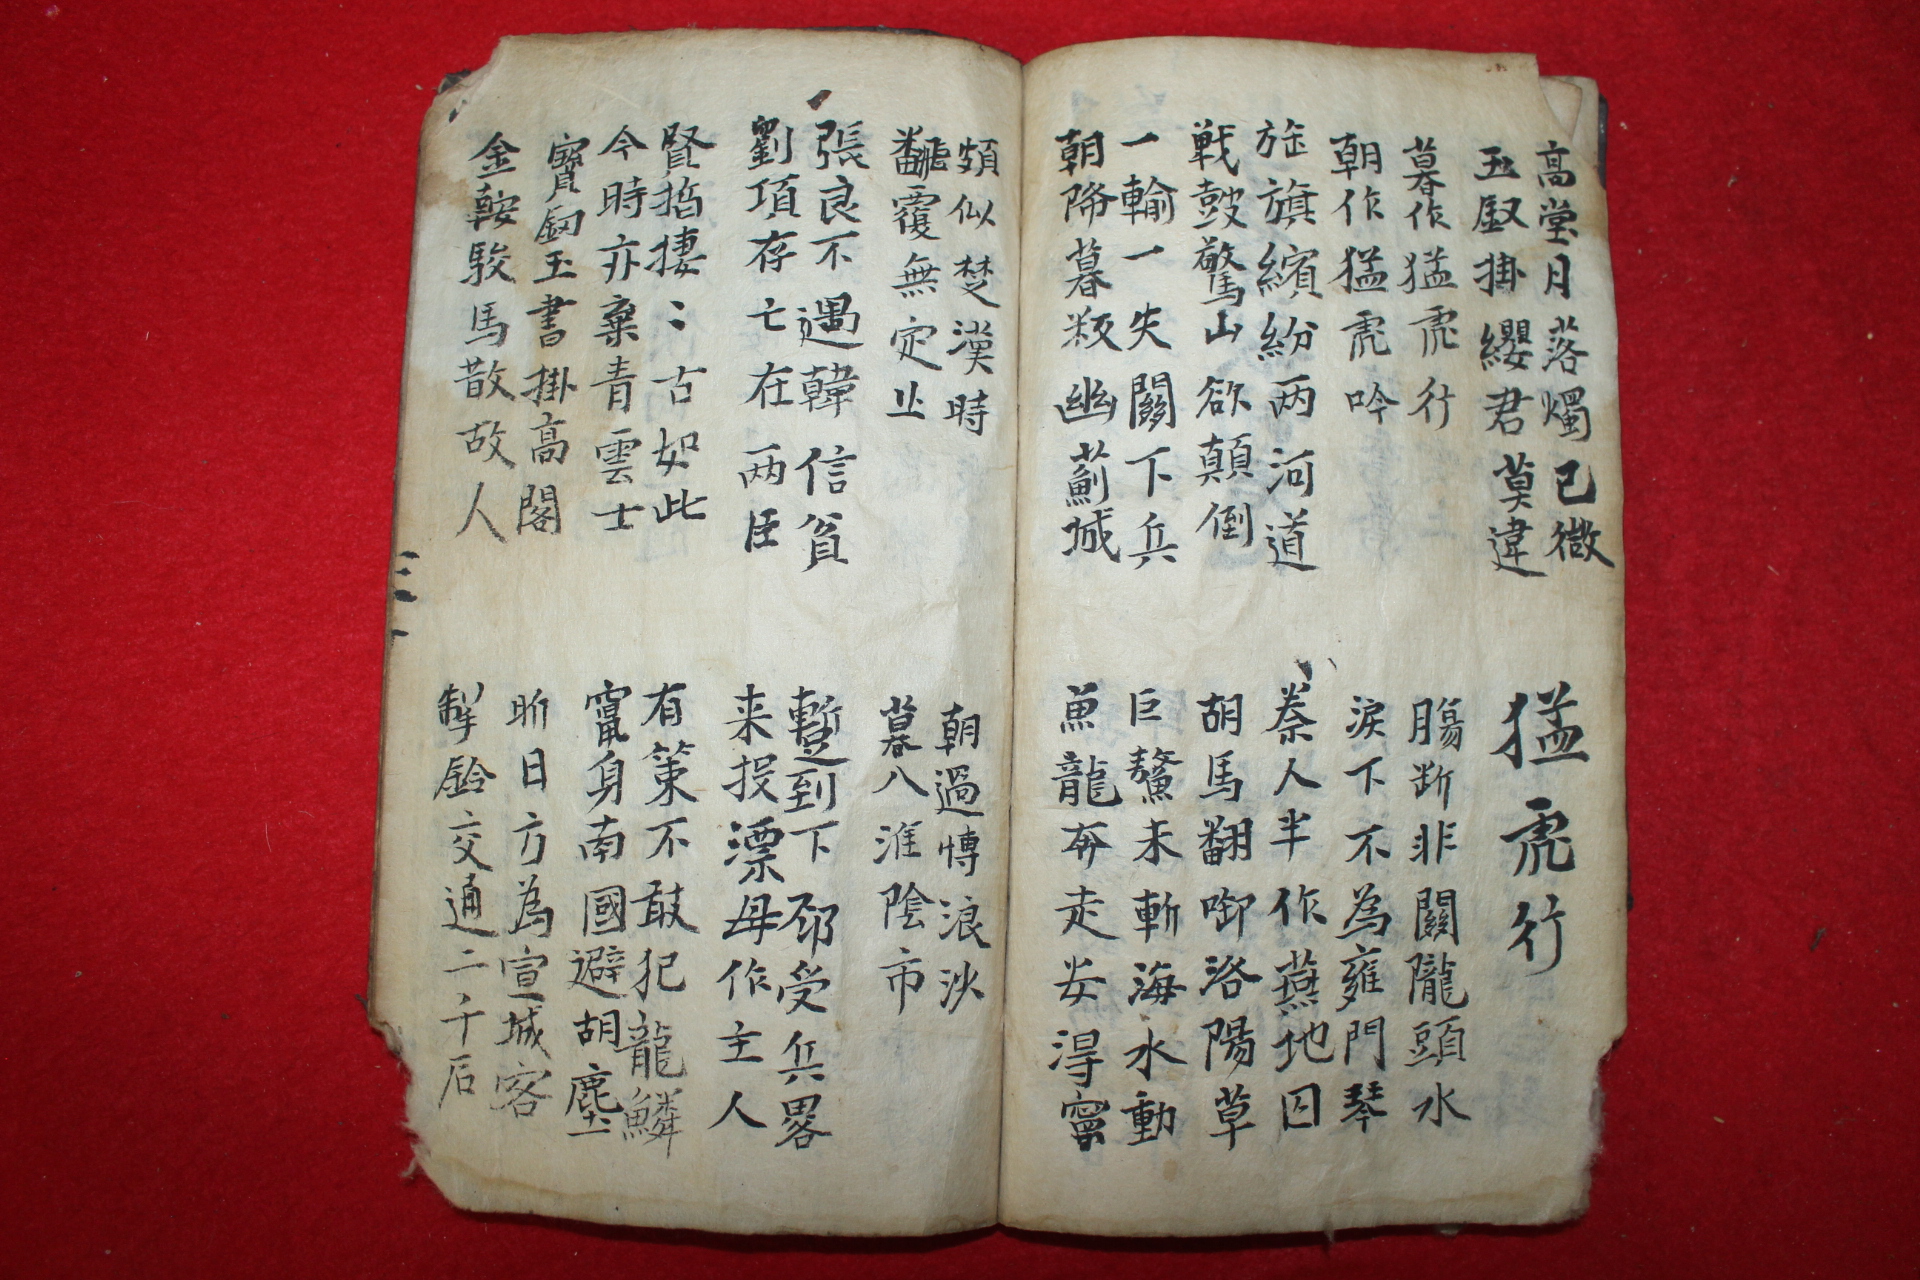 高堂月落燭已微
玉釵掛纓君莫違
猛虎行
暮作猛虎行
朝作猛虎吟
膓断非關隴頭水
淚下不為雍門琴
旌旗繽紛两河道
戦鼓驚山欲顛倒
秦人半作燕地囚
胡馬翻啣洛陽草
一輸一失關下兵
朝降暮叛幽薊城
巨鰲未斬海水動
魚龍奔走安得寧
頗似楚漢時
飜覆無定止
朝過博浪沙
暮入淮陰市
張良不遇韓信貧
劉項存亡在两臣
暫到下邳受兵畧
来投漂母作主人
賢哲捿〻古如此
今時亦棄青雲士
有策不敢犯龍鱗
竄身南國避胡塵
寳釰玉書掛高閣
金鞍駿馬散故人
昨日方為宣城客
掣鈴交通二千石